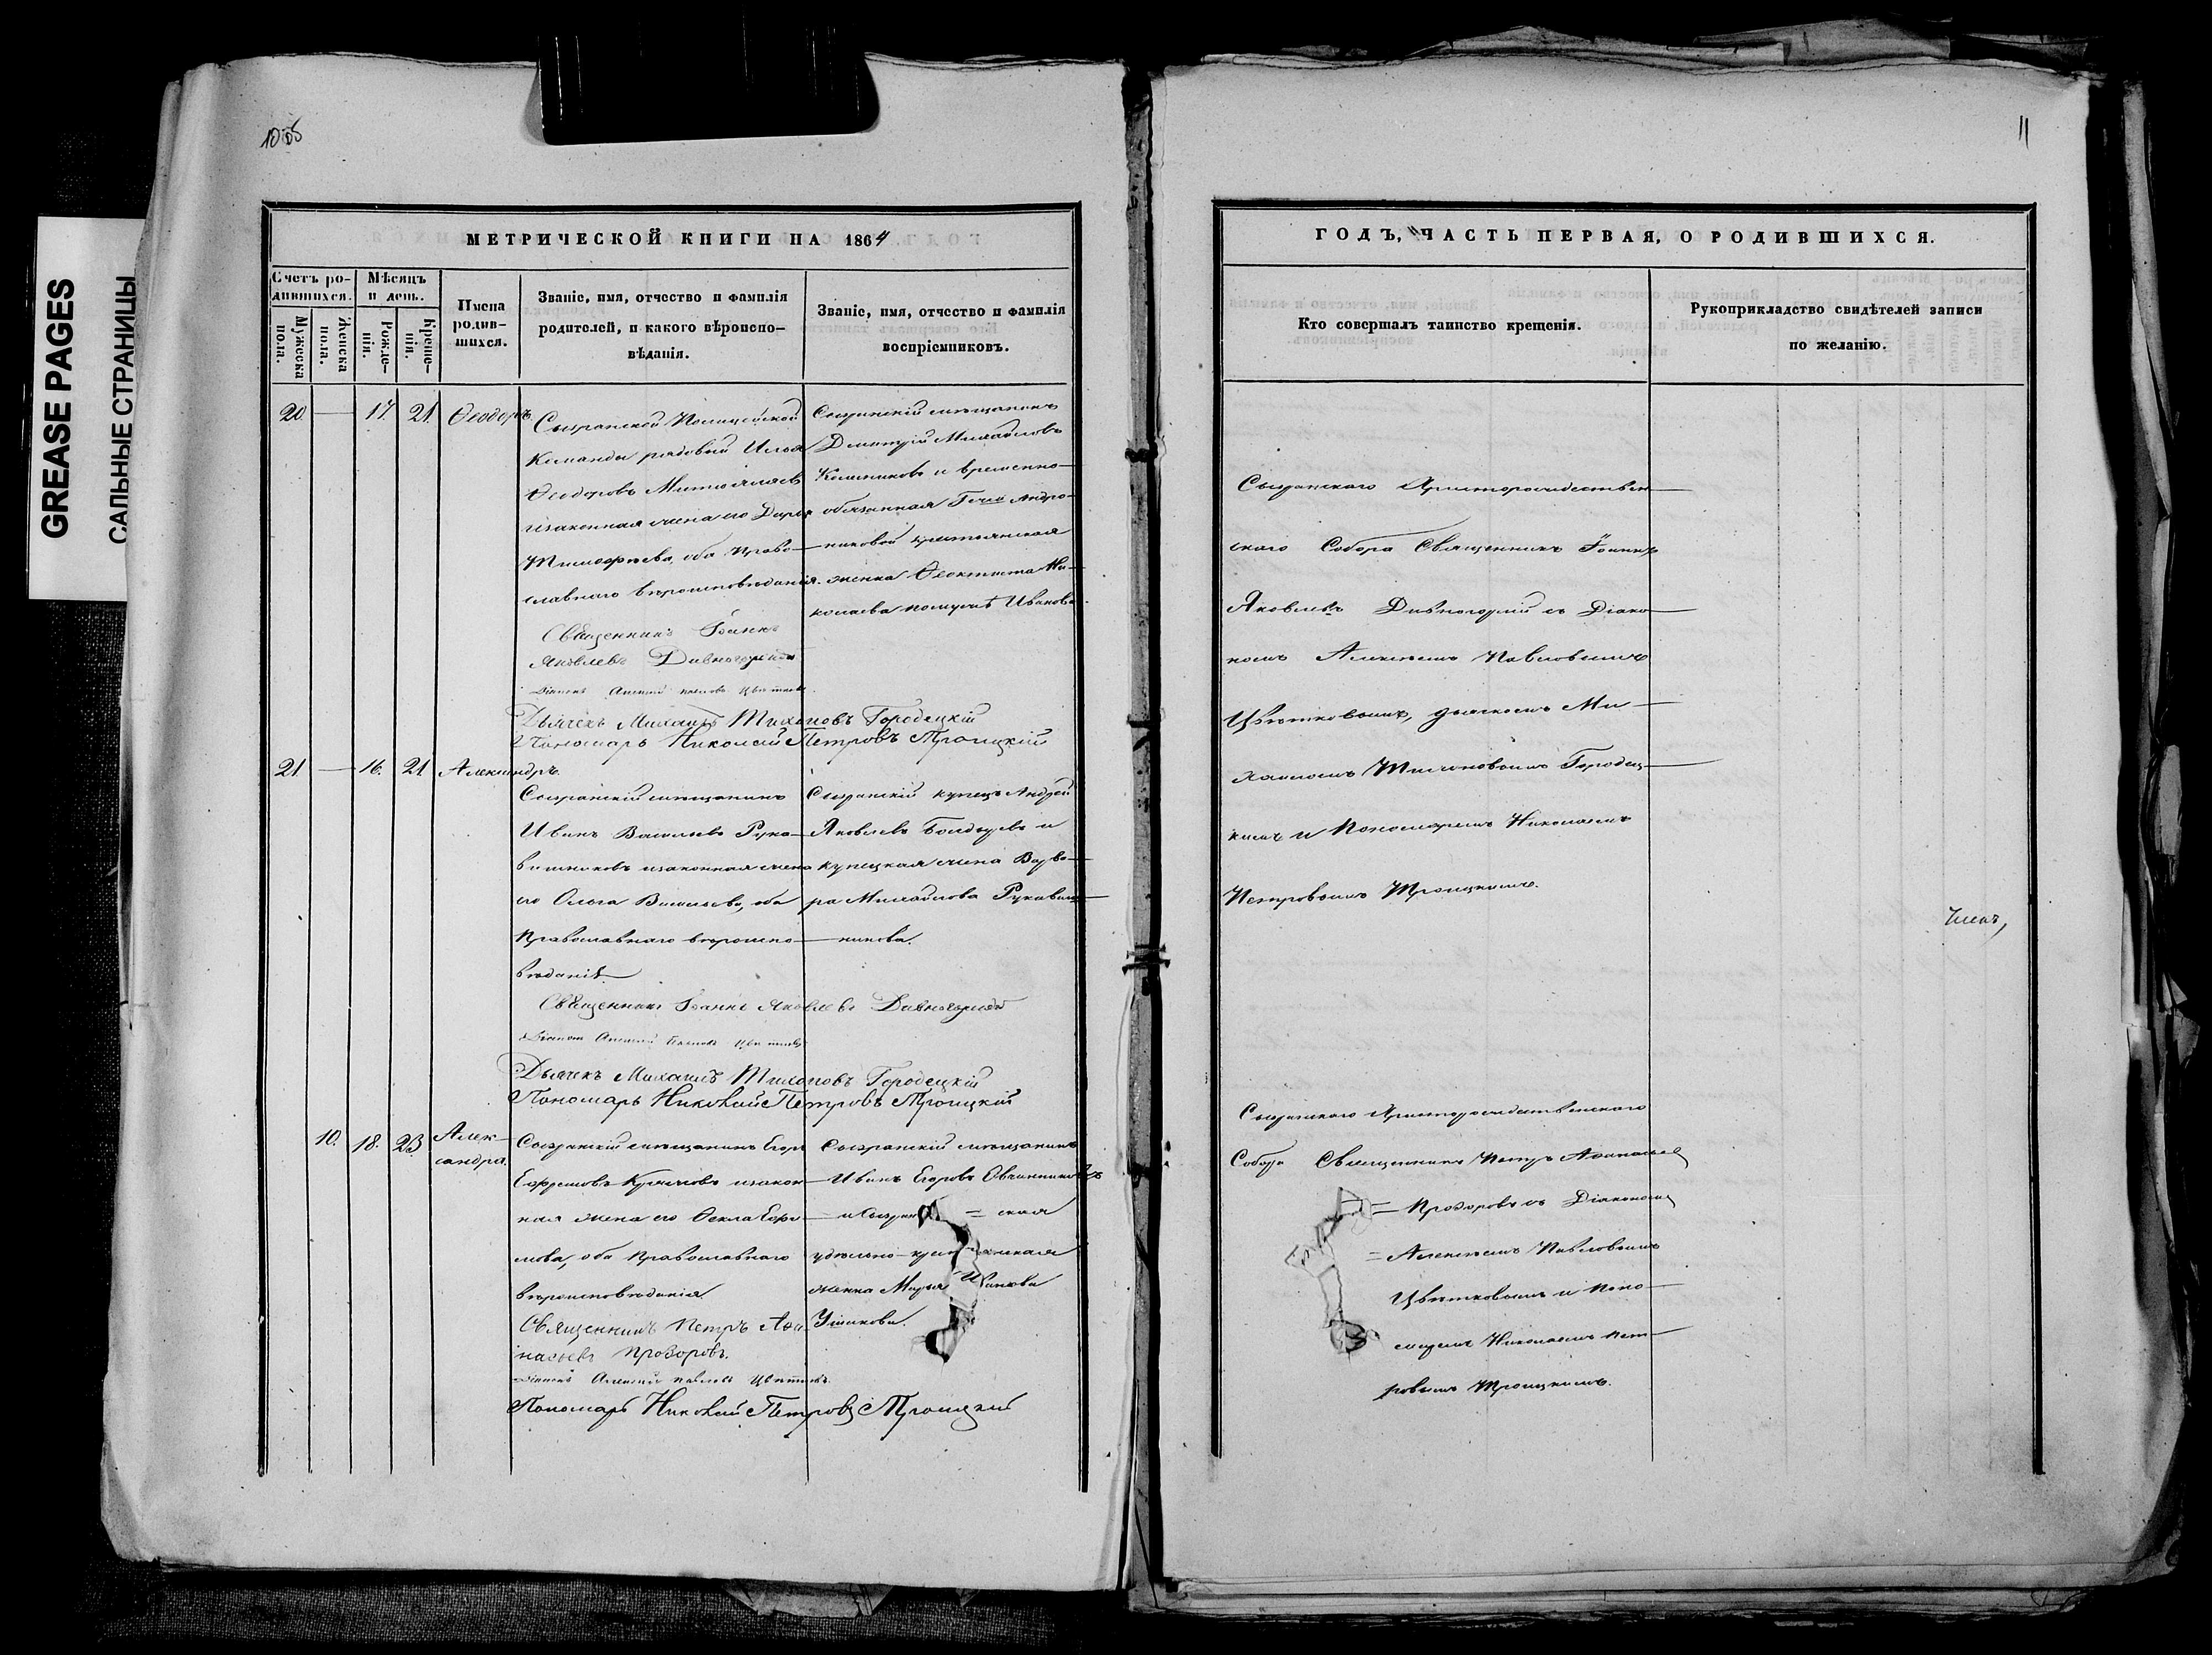 GREASE PAGES
САЛЬНЫЕ СТРАНИЦЫ
10 об
МЕТРИЧЕСКОЙ КНИГИ НА 1864
Счетъ ро-
дившихся.
Мужеска
пола.
Женска
пола.
Мѣсяцъ
и день.
Рожде-
нія.
Креще-
нія.
Имена
родив-
шихся.
Званіе, имя, отчество и фамилія
родителей, и какого вѣроиспо-
вѣданія.
Званіе, имя, отчество и фамилія
воспріемниковъ.
20 — 17. 21. Ѳеодоръ
Сызранской Полицейской
Команды рядовый Илья
Ѳеодоровъ
изаконная жена его Дарья
Тимофѣева, оба Право-
славнаго вѣроисповѣданія.
Священникъ Іоаннъ
Яковлевъ Дивногорскій
Діаконъ Алексій Павловъ Цвѣтковъ
Дьячекъ Михаилъ Тихоновъ Городецкій
Пономарь Николай Петровъ Троицкій
Сызранскій мѣщанинъ
Дмитрій Михайловъ
и временно-
обязанная Г-жи Андро-
никовой крестьянская
женка Ѳеоктиста Ни-
колаева Иванова
21 — 16. 21 Александръ.
Сызранскій мѣщанинъ
Иванъ Васильевъ Рука-
вишниковъ изаконная жена
его Ольга Васильева, оба
Православнаго вѣроиспо-
вѣданія
Священникъ Іоаннъ Яковлевъ Дивногорскій
Діаконъ Алексій Павловъ Цвѣтковъ
Дьячекъ Михаилъ Тихоновъ Городецкій
Пономарь Николай Петровъ Троицкій
Сызранскій купецъ Андрей
Яковлевъ Болдыревъ и
купецкая жена Варва-
ра Михайлова Рукавиш-
никова.
10. 18. 23 Алек-
сандра.
Сызранскій мѣщанинъ Егоръ
Ефремовъ изакон-
ная жена его Ѳекла Ефи-
мова, оба Православнаго
вѣроисповѣданія
Священникъ Петръ Аѳа-
насьевъ Прозоровъ.
Діаконъ Алексій Павловъ Цвѣтковъ.
Пономарь Николай Петровъ Троицкій
Сызранскій мѣщанинъ
Иванъ Егоровъ Овчинниковъ
и Сызран = ская
удѣльно-крестьянская
женка Марья Иванова
Ушакова.
11
ГОДЪ, ЧАСТЬ ПЕРВАЯ, О РОДИВШИХСЯ.
Кто совершалъ таинство крещенія.
Рукоприкладство свидѣтелей записи
по желанію.
Сызранскаго Христорождествен-
скаго Собора Священникъ Іоаннъ
Яковлевъ Дивногорскій съ Діако-
номъ Алексѣемъ Павловымъ
Цвѣтковымъ, дьячкомъ Ми-
хаиломъ Тихоновымъ Городец-
кимъ и Пономаремъ Николаемъ
Петровымъ Троицкимъ.
Сызранскаго Христорождественскаго
Собора Священникъ Петръ Аѳанасьев
= Прозоровъ съ Діакономъ
= Алексѣемъ Павловымъ
Цвѣтковымъ и Поно-
маремъ Николаемъ Пет-
ровымъ Троицкимъ.